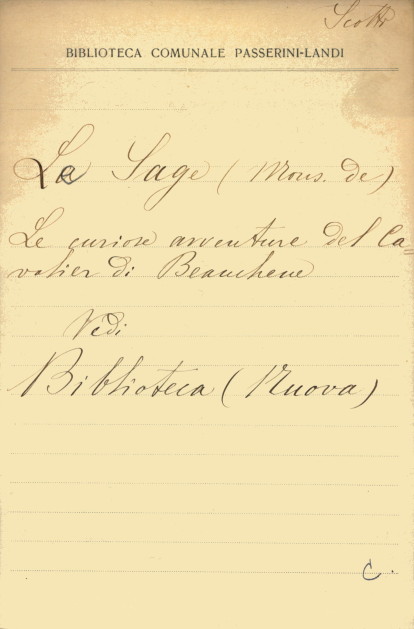 Scotti
BIBLIOTECA COMUNALE PASSERINI-LANDI
Le Sage (Mons. de)
Le curiose avventure del Ca=
valier di Beauchene
Vedi
Biblioteca (Nuova)
C.